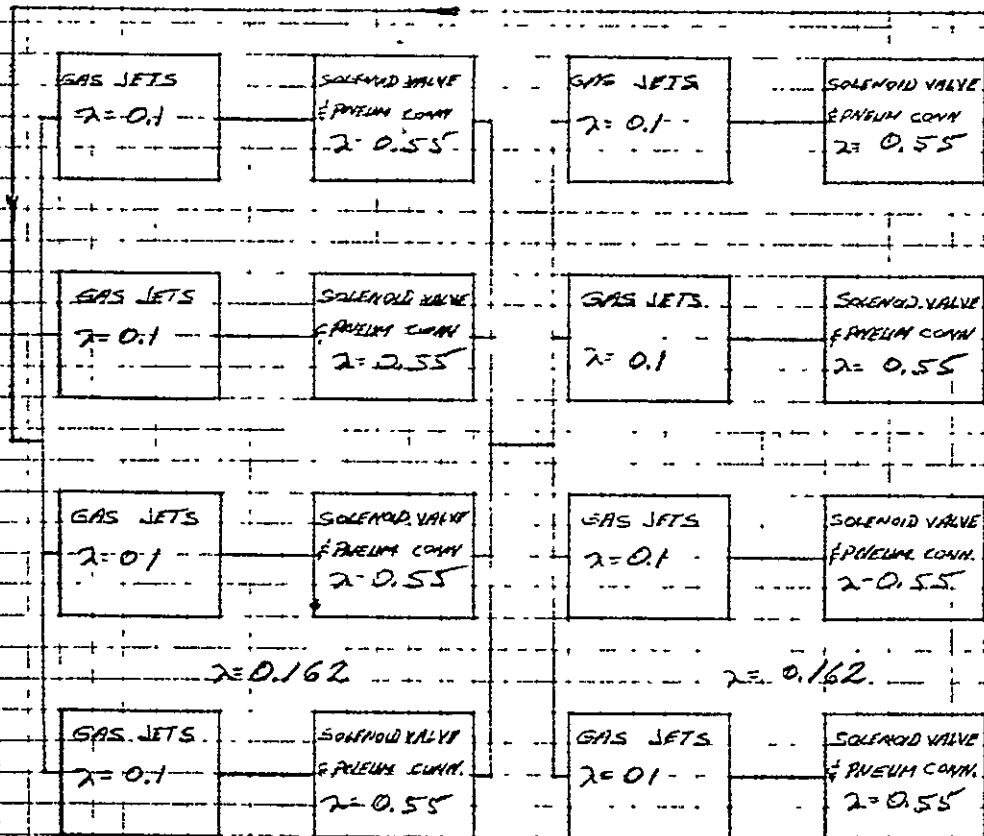 GAS JETS
λ=0.1
SOLENOID VALVE
& PNEUM CONN
λ-0.55
GAS JETS
λ=0.1
SOLENOID VALVE
& PNEUM CONN
λ= 0.55
GAS JETS
λ=0.1
SOLENOID VALVE
& PNEUM CONN
λ=0.55
GAS JETS.
λ= 0.1
SOLENOID VALVE
& PNEUM CONN
λ= 0.55
GAS JETS
λ=01
SOLENOID VALVE
& PNEUM CONN
λ-0.55
GAS JETS
λ=0.1
SOLENOID VALVE
& PNEUM CONN.
λ-0.55.
λ=0.162
λ=0.162.
GAS JETS.
λ=0.1
SOLENOID VALVE
& PNEUM CONN.
λ=0.55
GAS JETS
λ=01
SOLENOID VALVE
& PNEUM CONN.
λ=0.55